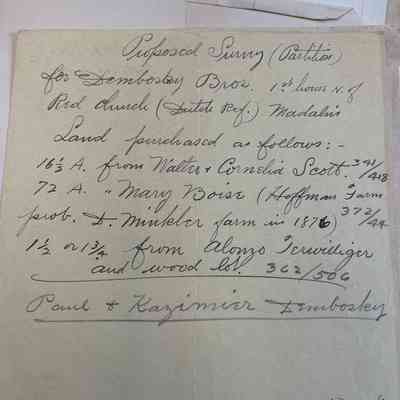 Proposed Survey (Partition)
for Dembosky Bros. 1st house N. of
Red church (Dutch Ref.) Madalin
Land purchased as follows:-
16 1/2 A. from Walter & Cornelia Scott. 341/418
72 A. " Mary Boise (Hoffman Farm
prob. D. Minkler farm in 1876) 372/44
1 1/2 or 1 3/4 from Alonzo Terwilliger
and wood lot. 362/506
Paul & Kazimier Dembosky